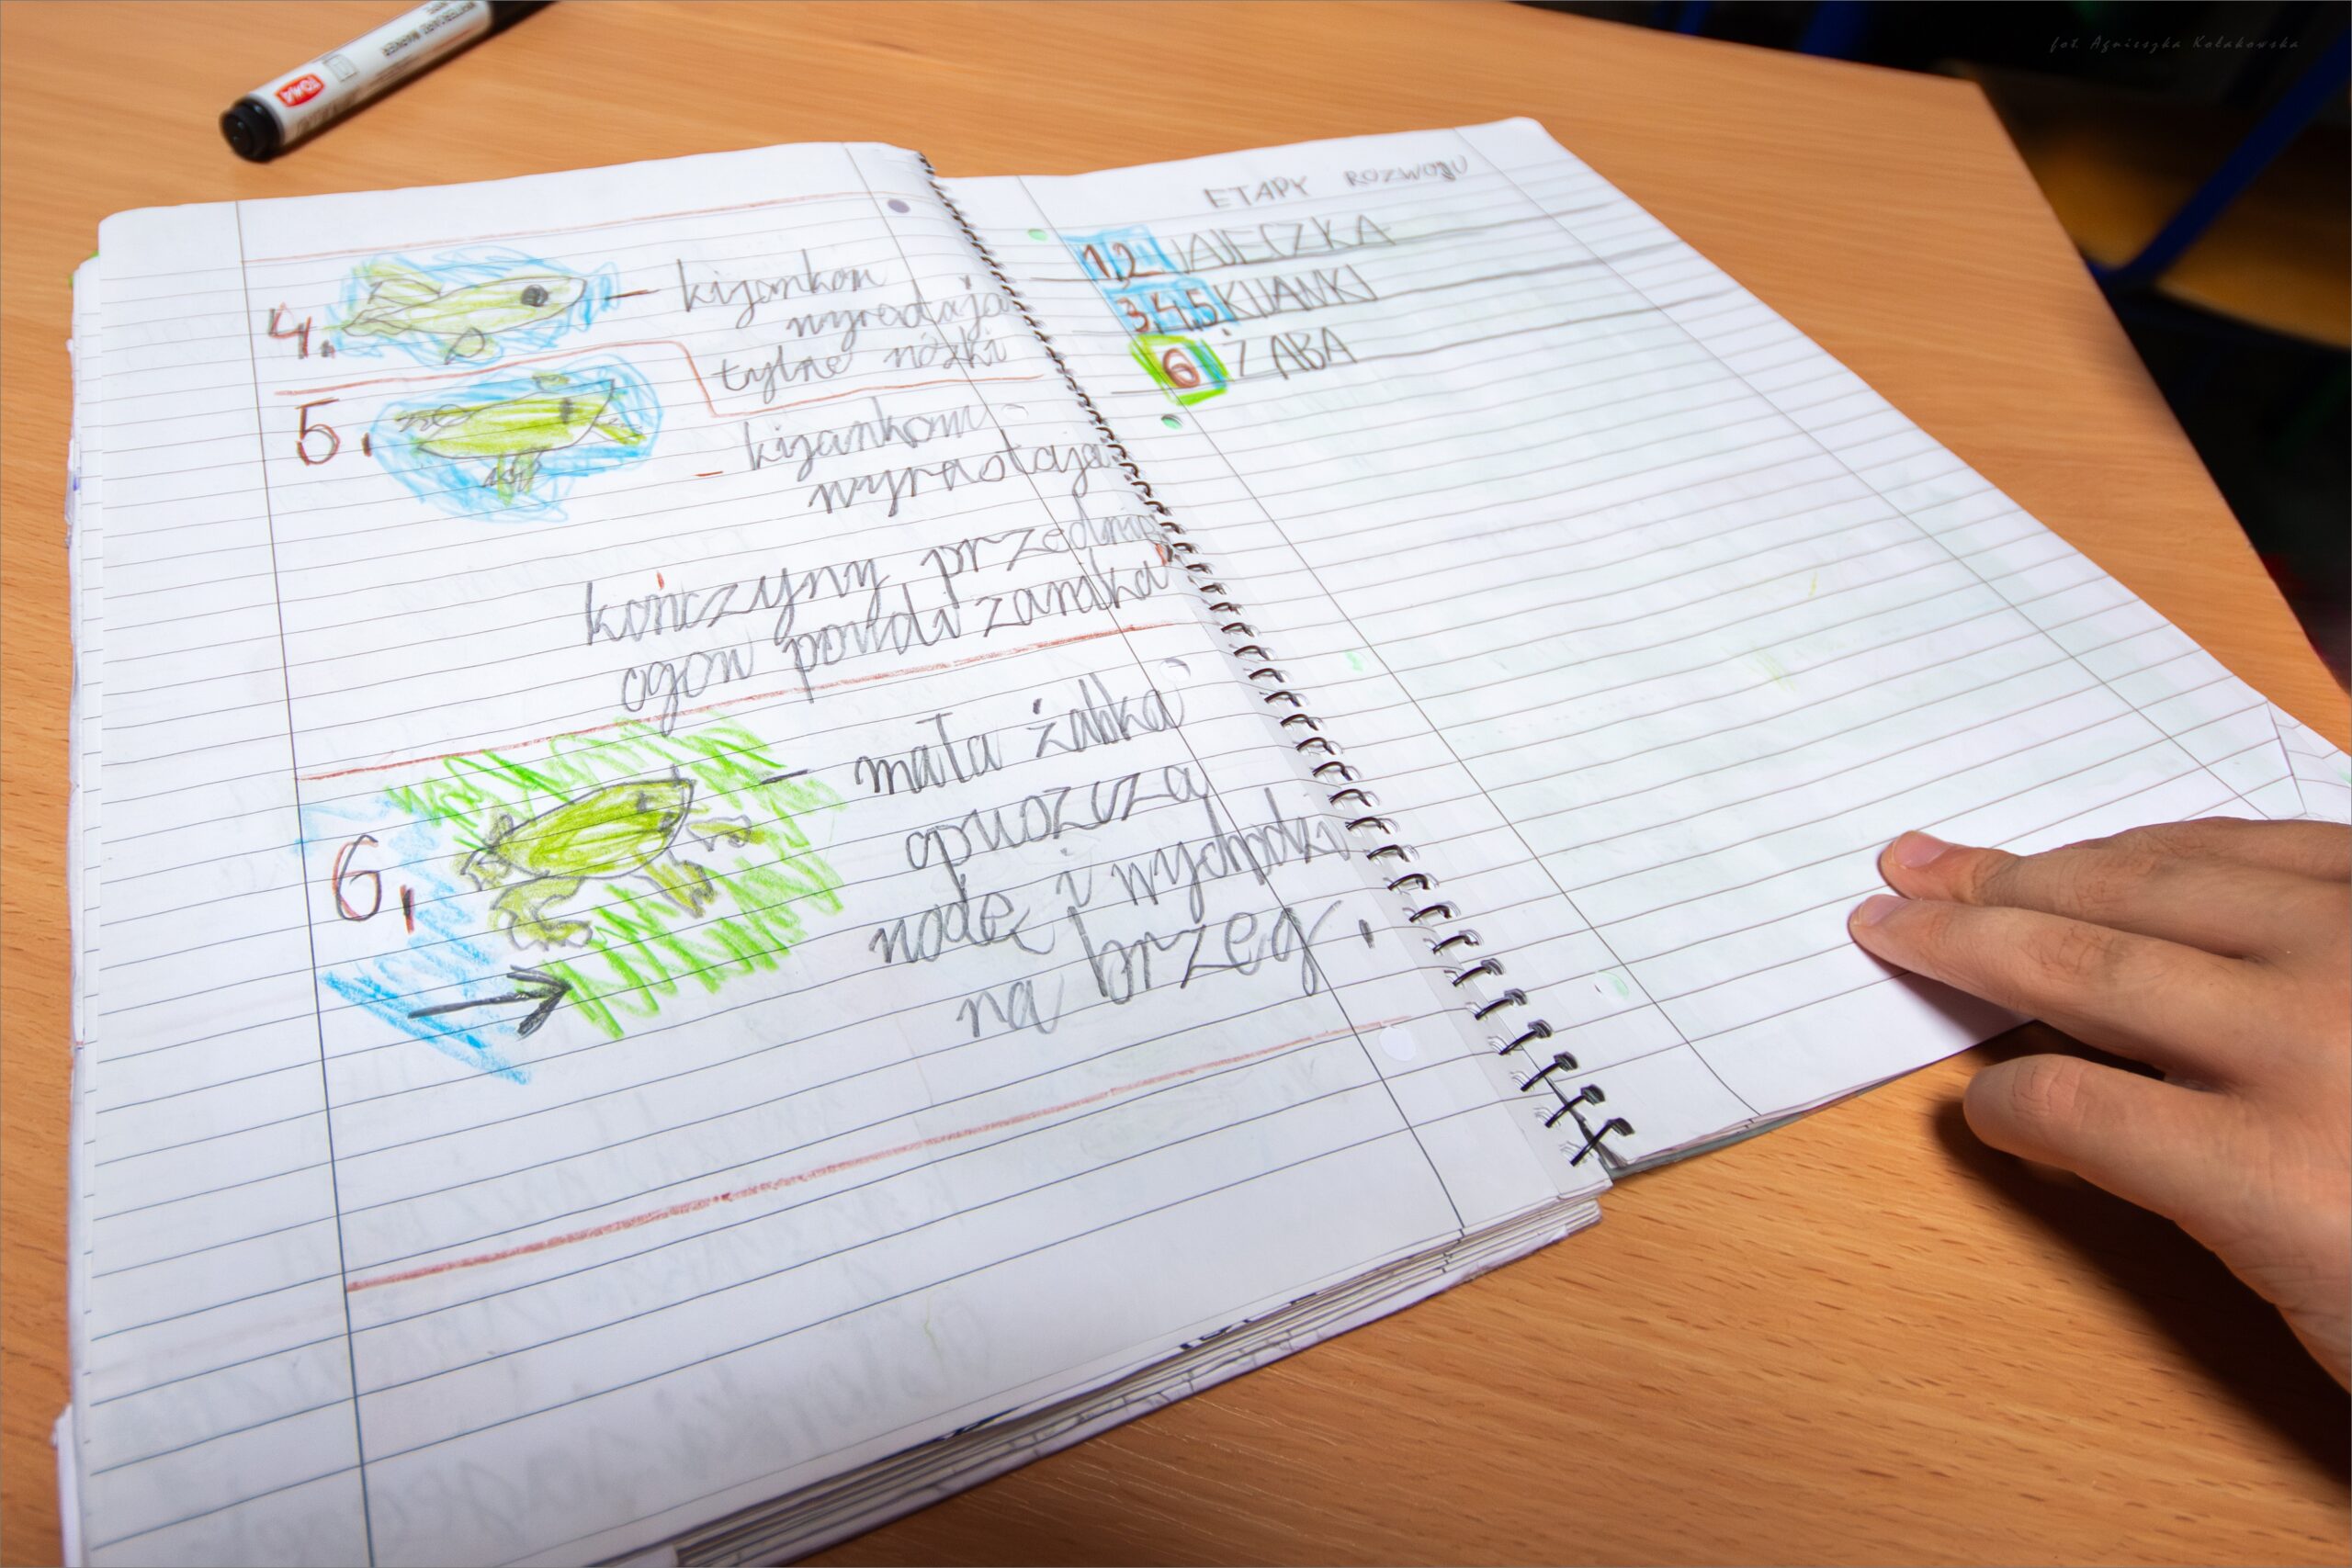 fot. Agnieszka Kołakowska
TOMA
4.
kijankom
wyrastają
tylne nóżki
5.
kijankom
wyrastają
kończyny przednie
ogon powoli zanika
6.
mała żabka
opuszcza
wodę i wychodzi
na brzeg.
ETAPY ROZWOJU
1,2 JAJECZKA
3,4,5 KIJANKI
6 ŻABA